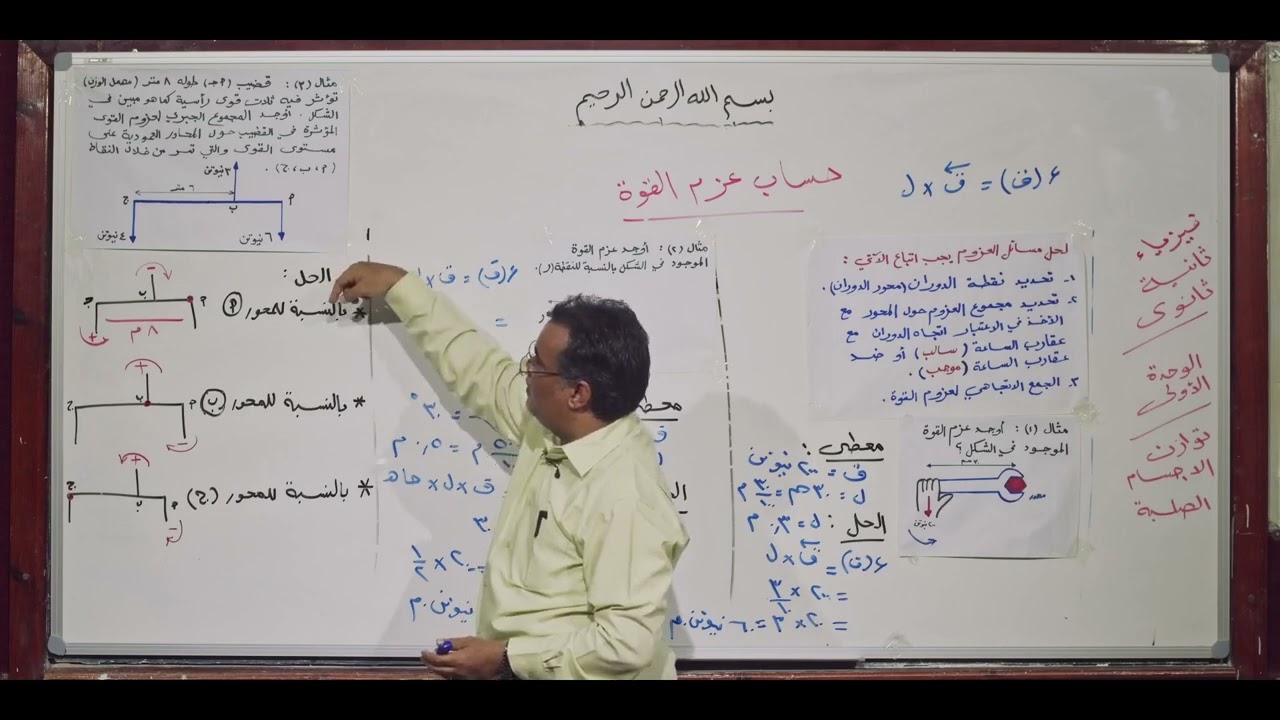 بسم الله الرحمن الرحيم
حساب عزم القوة
ع(ق) = ق × ل
فيزياء
ثانية
ثانوي
الوحدة
الأولى
توازن
الاجسام
الصلبة
لحل مسائل العزوم يجب اتباع الآتي :
١- تحديد نقطة الدوران (محور الدوران).
٢- تحديد مجموع العزوم حول المحور مع
الأخذ في الاعتبار اتجاه الدوران مع
عقارب الساعة (سالب) أو ضد
عقارب الساعة (موجب).
٣- الجمع الاتجاهي لعزوم القوة.
مثال (١) : أوجد عزم القوة
الموجود في الشكل ؟
محور
معطى :
ق = ٢٠٠ نيوتن
ل = ٣٠ سم = م
الحل : ل = ٠,٣ م
ع(ق) = ق × ل
= ٢٠٠ ×
= ٢٠ × ٣ = ٦٠ نيوتن.م
مثال (٢) : أوجد عزم القوة
الموجود في الشكل بالنسبة للنقطة (ر).
ع(ق) = ق ×
=
= ٣٠°
م = ٠,٥ م
ق × ل × جاهـ
٣٠
٢٠٠ × ١/٢
نيوتن.م
مثال (٣) : قضيب (٩جـ) طوله ٨ متر (مهمل الوزن)
تؤثر فيه ثلاث قوى رأسية كما هو مبين في
الشكل . أوجد المجموع الجبري لعزوم القوى
المؤثرة في القضيب حول المحاور العمودية على
مستوى القوى والتي تمر من خلال النقاط
(٩ ، ب ، ج) .
٣ نيوتن
٦ متر
ج
ب
٩
٤ نيوتن
٦ نيوتن
الحل :
* بالنسبة للمحور (٩)
ج ب ٩
٨ م
* بالنسبة للمحور (ب)
ج ب ٩
* بالنسبة للمحور (ج)
ج ب ٩